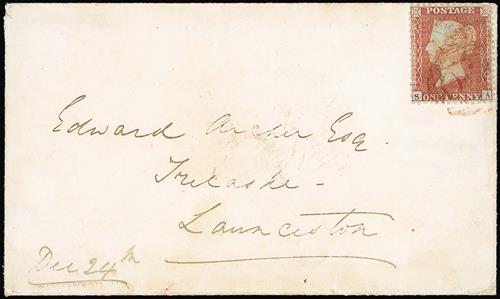 POSTAGE
S ONE PENNY A
Edward Archer Esq.
Trelaske -
Launceston.
Dec 24th